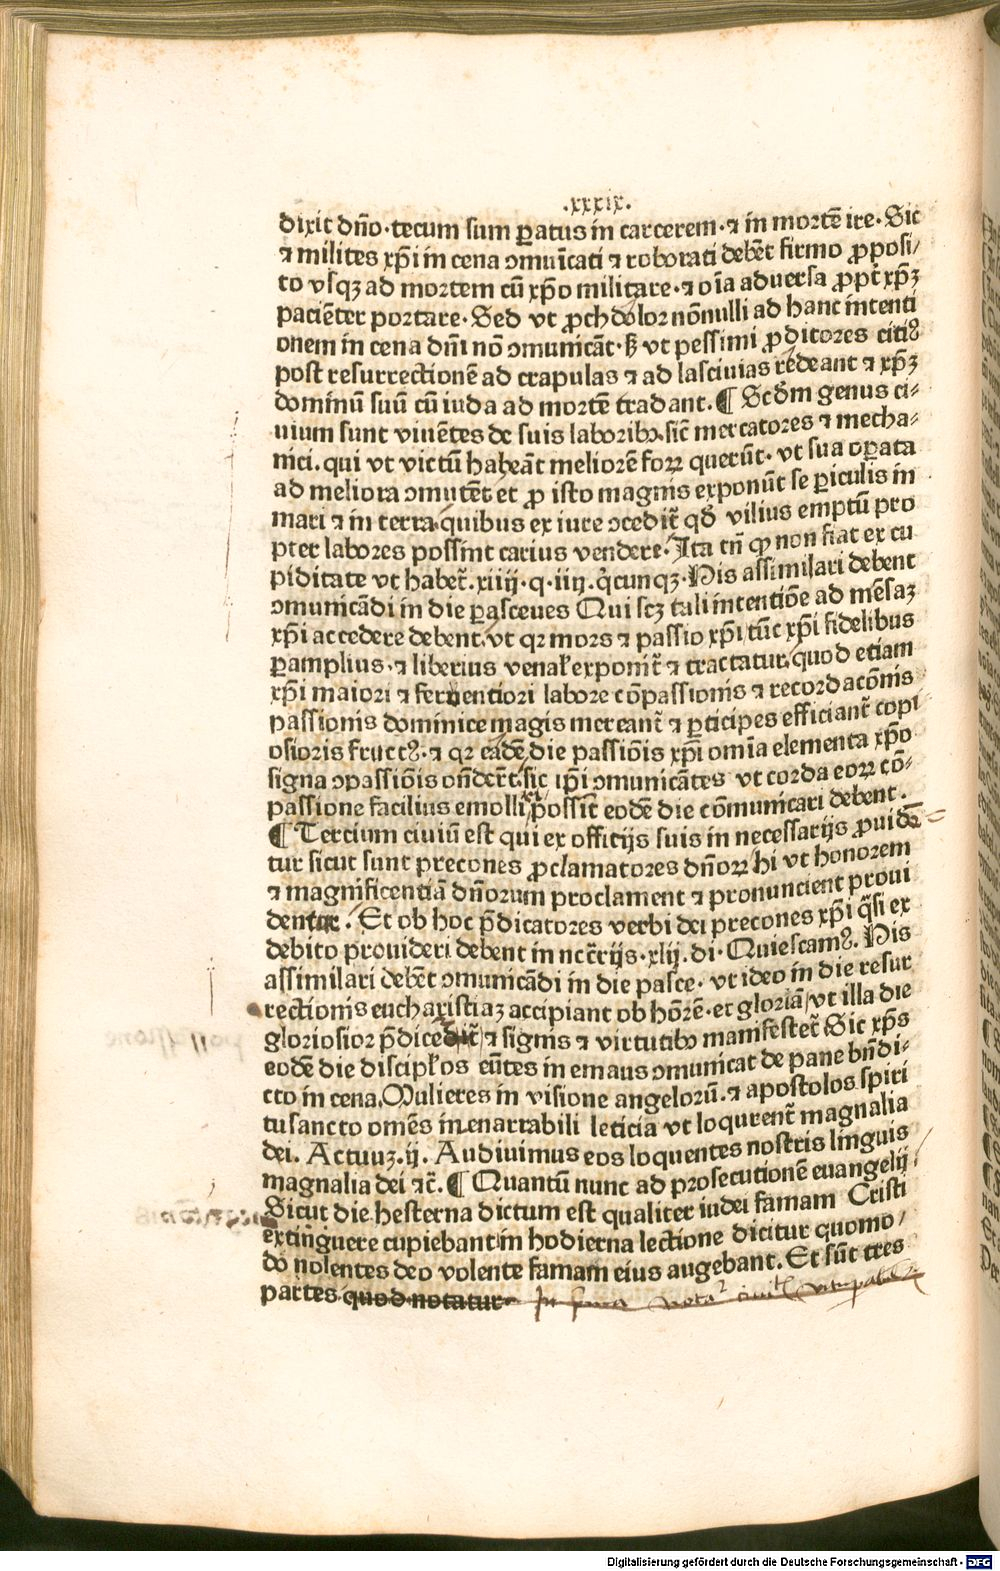 .xxxix.
dixit dn̄o·tecum sum ꝑatus in carcerem·⁊ in mortē ire·Sic
⁊ milites xp̄i in cena ꝯmūicati ⁊ roborati debēt firmo ꝓposi/
to vsqꝫ ad mortem cū xp̄o militare·⁊ oīa aduersa ꝓpt̄ xp̄ꝫ
paciēter portare·Sed vt ꝓch dolor nōnulli ad hanc intenti
onem in cena dn̄i nō ꝯmunicāt·ß vt pessimi ꝓditores citiꝰ
post resurrectionē ad crapulas ⁊ ad lasciuias redeant ⁊ xp̄ꝫ
dominū suū cū iuda ad mortē tradant.¶ Scd̄m genus ci⸗
uium sunt viuētes de suis laboribꝫ sic̄ mercatores ⁊ mecha⸗
nici. qui vt victū habeāt meliorē foꝝ querūt· vt sua oꝑata
ad meliora ꝯmutēt et ꝓ isto magnis exponūt se ꝑiculis in
mari ⁊ in terra quibus ex iure ꝯcedit̄ qd̄ vilius emptū pro
pter labores possint carius vendere·Ita tn̄ ꝙ non fiat ex cu
piditate vt habet̄. xiiij·q·iiij. q̄cunqꝫ·His assimilari debent
ꝯmunicādi in die ꝑasceues Qui scꝫ tali intentiōe ad mēsaꝫ
xp̄i accedere debent vt qꝛ mors ⁊ passio xp̄i tūc xp̄i fidelibus
ꝑamplius·⁊ liberius venal̄ exponit̄ ⁊ tractatur quod etiam
xp̄i maiori ⁊ feruentiori labore cōpassionis ⁊ recordacōnis
passionis dominice magis mereant̄ ⁊ ꝑticipes efficiant̄ copi
osioris fructꝰ·⁊ qꝛ eadē die passiōis xp̄i omīa elementa xp̄o
signa ꝯpassiōis ondēt. sic ip̄i ꝯmunicātes vt corda eoꝝ cō⸗
passione facilius emolli possīt eodē die cōmunicari debent.
¶ Tercium ciuiū est qui ex officijs suis in necessarijs ꝓuidē
tur sicut sunt precones ꝓclamatores dn̄oꝝ hi vt honorem
⁊ magnificentiā dn̄orum proclament ⁊ pronuncient proui
dentur. Et ob hoc p̄dicatores verbi dei precones xp̄i q̄si ex
debito prouideri debent in ncc̄rijs·xlij.di·Quiescamꝰ. His
assimilari debēt ꝯmunicādi in die pasce· vt ideo in die resur
rectionis eucharistiaꝫ accipiant ob hōrē·et gloriā vt illa die
gloriosior p̄dicet̄ ⁊ signis ⁊ virtutibꝫ manifestet̄ Sic xp̄s
eodē die discipl̄os eūtes in emaus ꝯmunicat de pane bn̄di⸗
cto in cena. Mulieres in visione angelorū.⁊ apostolos spiri
tusancto omēs inenarrabili leticiā vt loqurent̄ magnalia
dei. Actuuꝫ.ij. Audiuimus eos loquentes nostris linguis
magnalia dei ⁊c̄.¶ Quantū nunc ad prosecutionē euangelij
Sicut die hesterna dictum est qualiter iudei famam Cristi
extinguere cupiebant in hodierna lectione dicitur quomo/
do nolentes deo volente famam eius augebant. Et sūt tres
partes quod notatur
Digitalisierung gefördert durch die Deutsche Forschungsgemeinschaft · DFG